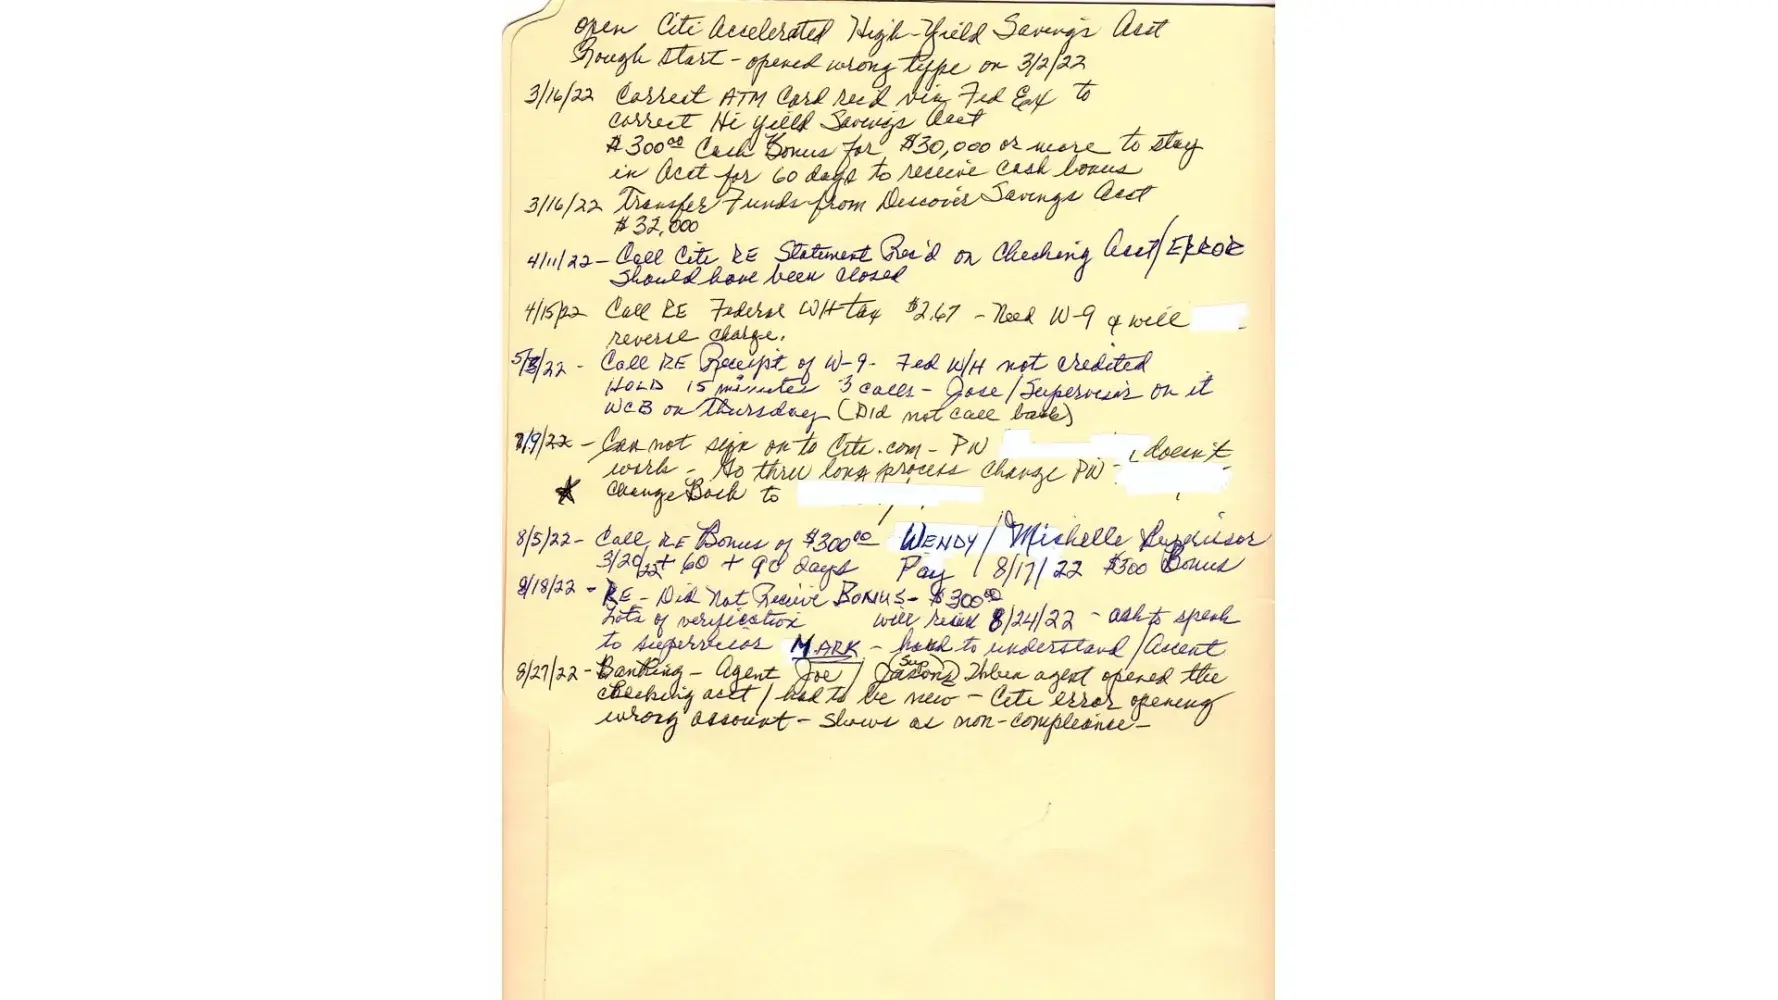 open Citi Accelerated High-Yield Savings Acct
Rough start - opened wrong type on 3/2/22
3/16/22 Correct ATM Card rec'd via Fed Ex to
correct Hi yield Savings Acct
$300.00 Cash Bonus for $30,000 or more to stay
in Acct for 60 days to receive cash bonus
3/16/22 Transfer Funds from Discover Savings Acct
$32,000
4/11/22 - Call Citi RE Statement Rec'd on Checking Acct/ERROR
should have been closed
4/15/22 Call RE Federal WH tax $2.67 - Need W-9 & will
reverse charge.
5/3/22 - Call RE Receipt of W-9 - Fed W/H not credited
HOLD 15 minutes 3 calls - Jose/Supervisor on it
WCB on Thursday (Did not call back)
/9/22 - Can not sign on to Citi.com - PW , doesn't
work - Go thru long process change PW -
★ change Back to
8/5/22 - Call RE Bonus of $300.00 WENDY / Michelle Supervisor
3/20/22 + 60 + 90 days Pay 8/17/22 $300 Bonus
8/18/22 - RE - Did Not Receive BONUS - $300.00
Lots of verification will 8/24/22 - ask to speak
to supervisor MARK - hard to understand/Accent
8/27/22 - Banking - Agent Joe / Jasons Sup When agent opened the
checking acct / had to be new - Citi error opening
wrong account - shows as non-compliance -